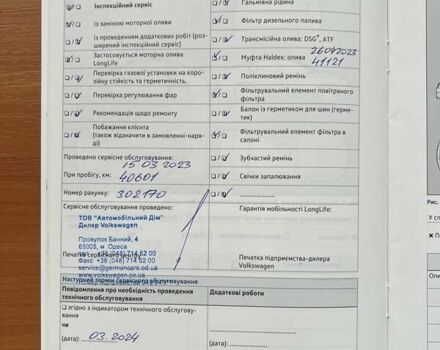 Інспекційний сервіс
із заміною моторної оливи
із проведенням додаткових робіт (роз-
ширений інспекційний сервіс)
Застосовується моторна олива
LongLife
Перевірка газової установки на коро-
зійну стійкість та герметичність.
Перевірка регулювання фар
Рекомендація щодо ремонту
Побажання клієнта
(також відзначити в замовленні-наря-
ді)
Проведено сервісне обслуговування:
15 03 2023
При пробігу, км: 40601
Номер рахунку: 302170
Сервісне обслуговування проведено:
ТОВ "Автомобільний Дім"
Дилер Volkswagen
Провулок Банний, 4
65005, м. Одеса
тел. +38 (048) 714 52 00
Факс +38 (048) 714 52 00
service@germancars.od.ua
www.volkswagen.od.ua
Печатка сервісного центру
Наступний термін сервісного обслуговування
Повідомлення про необхідність проведення
технічного обслуговування
згідно з індикатором технічного обслугову-
вання
чи
(дата): 03.2024
Гальмівна рідина
Фільтр дизельного палива
Трансмісійна олива: DSG®, ATF
26042023
Муфта Haldex: олива 41121
Полікліновий ремінь
Фільтрувальний елемент повітряного
фільтра
Балон із герметиком для шин (герме-
тик)
Фільтрувальний елемент фільтра в
салоні
Зубчастий ремінь
Свічки запалювання
Гарантія мобільності LongLife:
Печатка підприємства-дилера
Volkswagen
Додаткові роботи
(дата):
Рис.
У сп
По
Опи